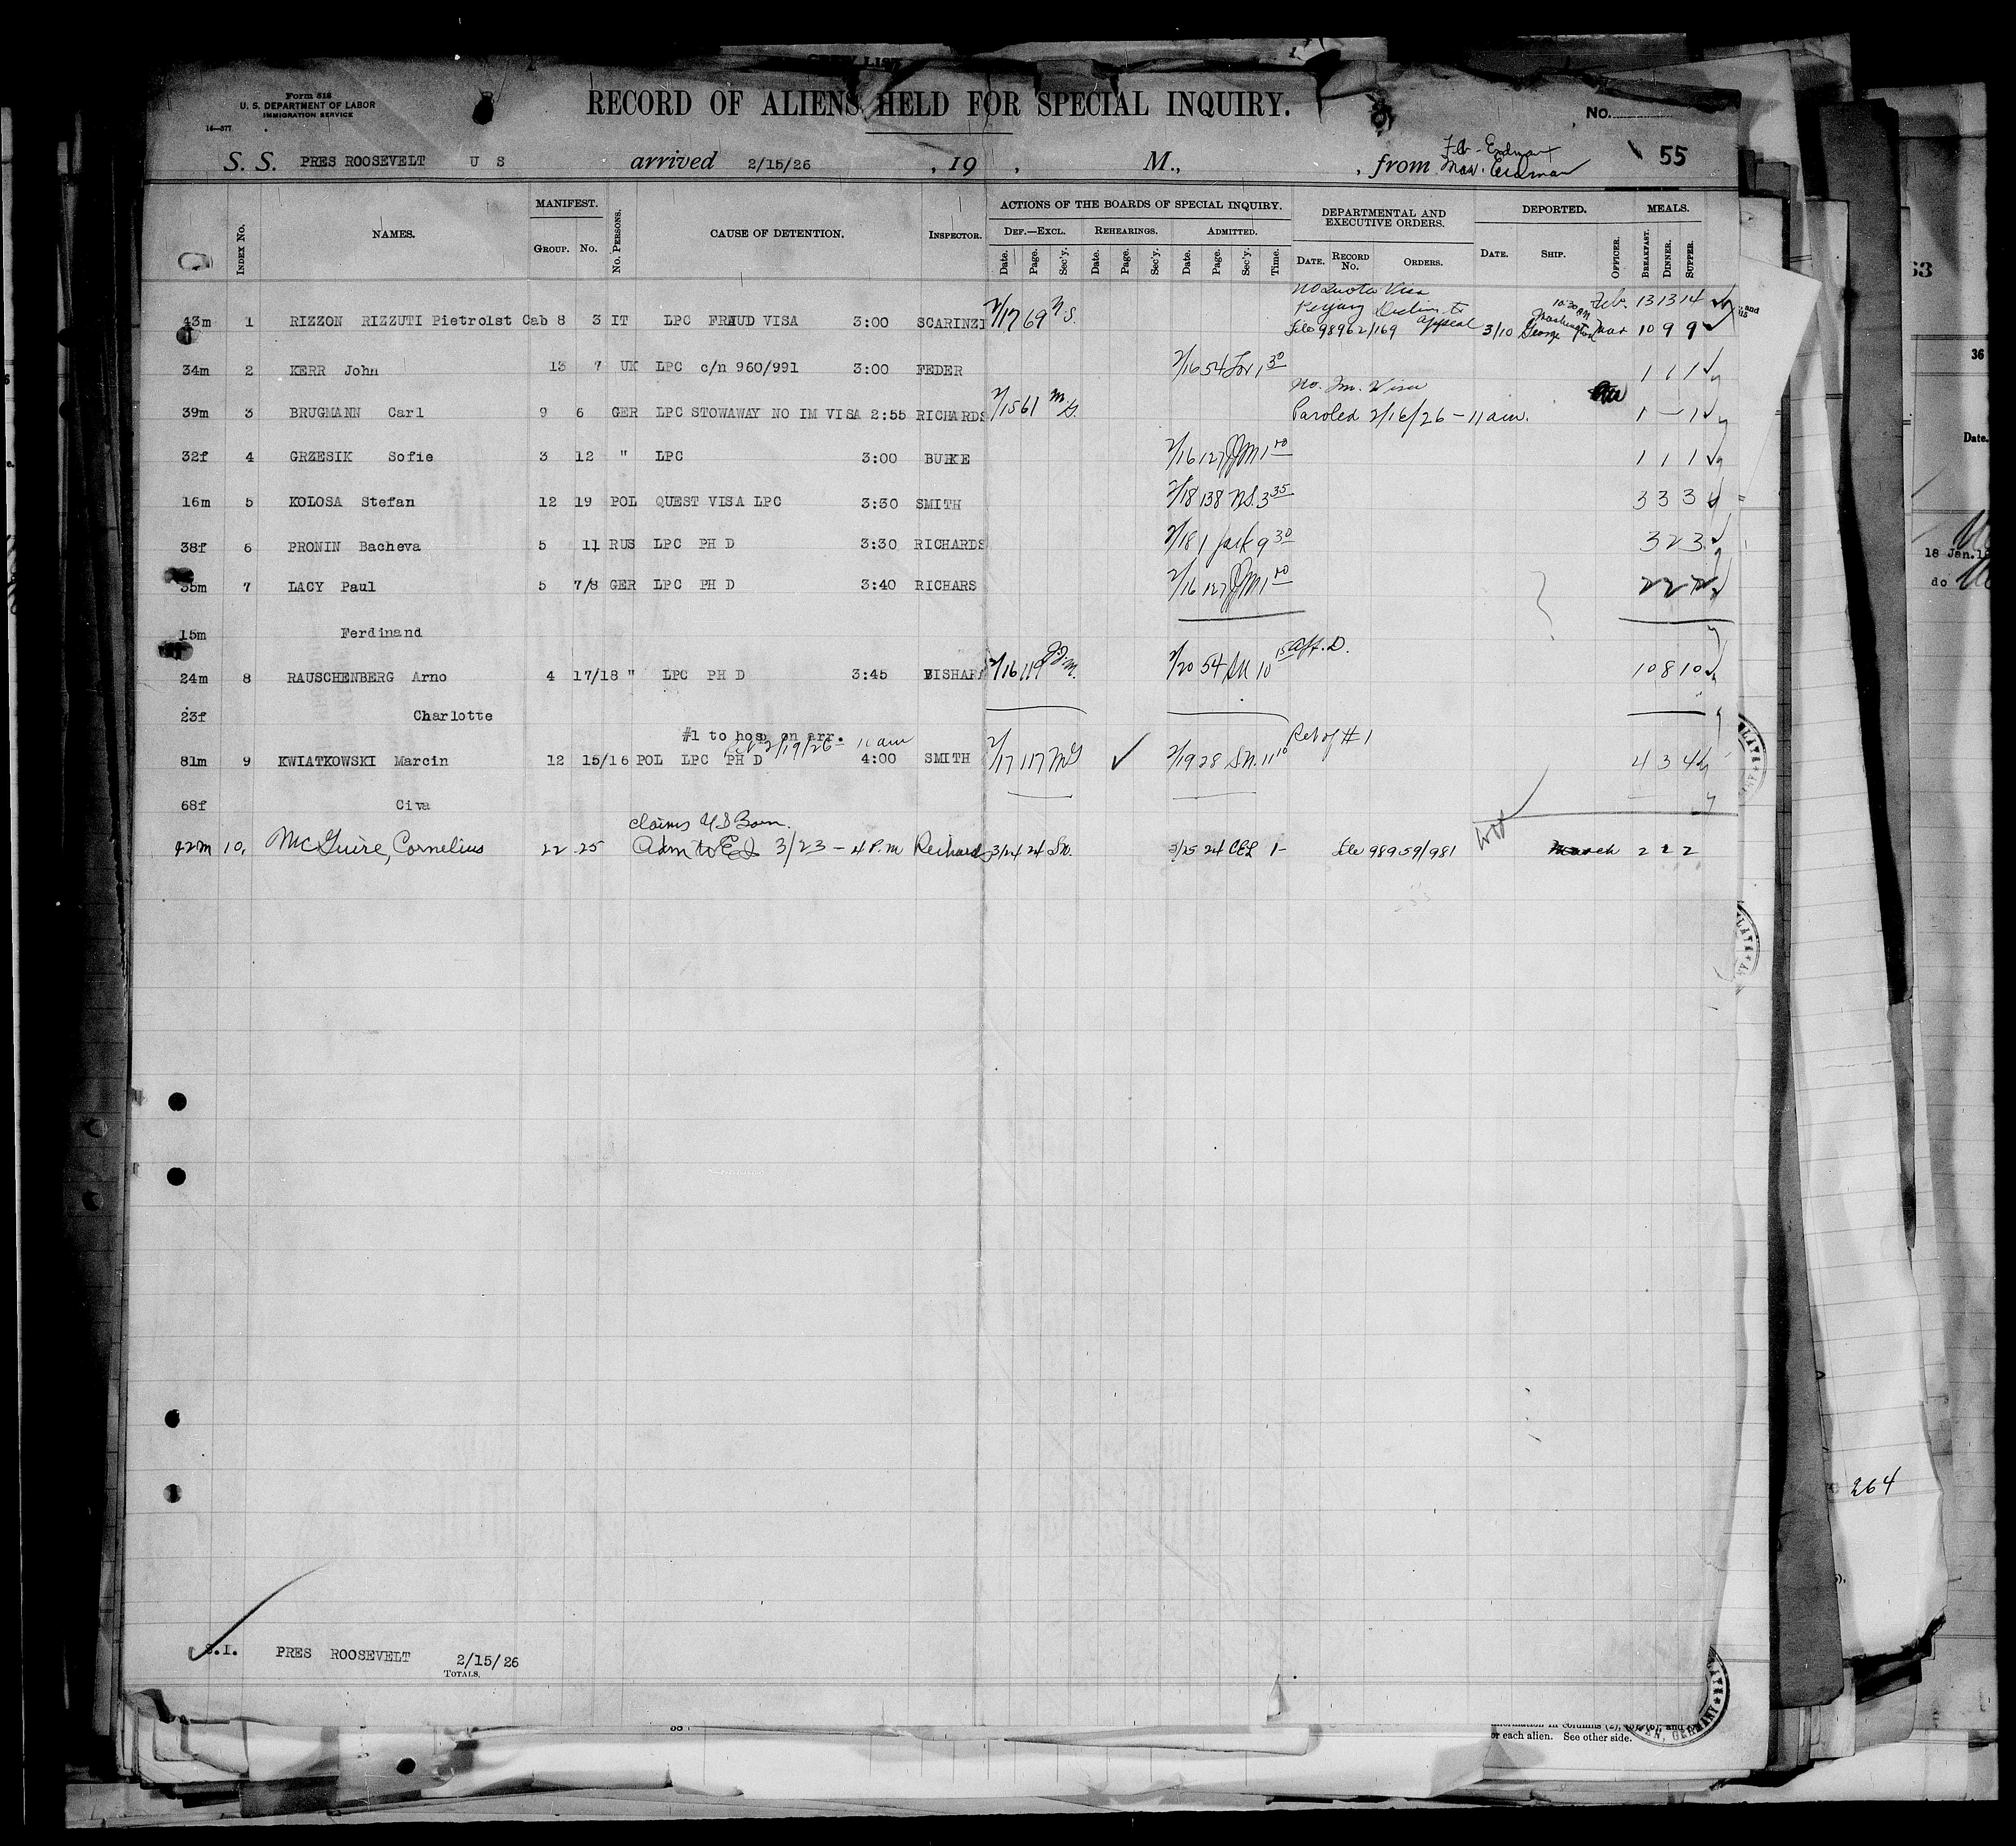 Form 518
U. S. DEPARTMENT OF LABOR
IMMIGRATION SERVICE
14—577
RECORD OF ALIENS HELD FOR SPECIAL INQUIRY.
No.
55
S. S. PRES ROOSEVELT U S arrived 2/15/26 , 19 , M., , from Feb - Erdman
Mar. Erdman
INDEX No. NAMES. MANIFEST. GROUP. No. No. PERSONS. CAUSE OF DETENTION. INSPECTOR. ACTIONS OF THE BOARDS OF SPECIAL INQUIRY. DEF.—EXCL. REHEARINGS. ADMITTED. DEPARTMENTAL AND EXECUTIVE ORDERS. DEPORTED. MEALS.
Date. Page. Sec'y. Date. Page. Sec'y. Date. Page. Sec'y. Time. DATE. RECORD No. ORDERS. DATE. SHIP. OFFICER. BREAKFAST. DINNER. SUPPER.
No Quota Visa 10:30 AM Feb. 13 13 14
43m 1 RIZZON RIZZUTI Pietro 1st Cab 8 3 IT LPC FRAUD VISA 3:00 SCARINZI 2/17 69 N.S. file 98962/169 appeal 3/10 George Washington Mar 10 9 9
34m 2 KERR John 13 7 UK LPC c/n 960/991 3:00 FEDER 2/16 54 1 30 1 1 1
No. Im. Visa
39m 3 BRUGMANN Carl 9 6 GER LPC STOWAWAY NO IM VISA 2:55 RICHARDS 2/15 61 Paroled 2/16/26 - 11 am. 1 — 1
32f 4 GRZESIK Sofie 3 12 " LPC 3:00 BURKE 2/16 127 JJM 1 00 1 1 1
16m 5 KOLOSA Stefan 12 19 POL QUEST VISA LPC 3:30 SMITH 2/18 138 N.S. 3 35 3 3 3
38f 6 PRONIN Bacheva 5 11 RUS LPC PH D 3:30 RICHARDS 2/18 1 9 30 3 2 3
35m 7 LACY Paul 5 7/8 GER LPC PH D 3:40 RICHARS 2/16 127 JJM 1 00 2 2 2
15m Ferdinand
24m 8 RAUSCHENBERG Arno 4 17/18 " LPC PH D 3:45 2/16 119 J.J.M. 2/20 54 SN 10 15 Aff. D. 10 8 10
23f Charlotte
#1 to hosp on arr.
2/19/26 - 10 am Ret of #1
81m 9 KWIATKOWSKI Marcin 12 15/16 POL LPC PH D 4:00 SMITH 2/17 117 2/19 28 S.N. 11 10 4 3 4
68f Civa
claims U S Born.
42m 10. McGuire, Cornelius 22 25 Adm to E I 3/23 - 4 P.M Richards 3/24 24 SN. 3/25 24 CEL 1- file 98959/981 March 2 2 2
S.I. PRES ROOSEVELT 2/15/26
TOTALS.
63
36
Date.
18 Jan.
do
264
information in columns (2), (5), (6), and
or each alien. See other side.
EN, GERMANY